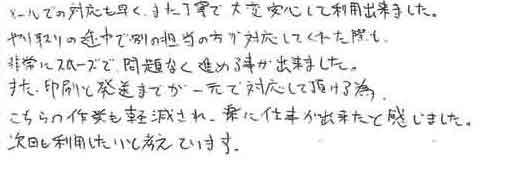 メールでの対応も早く、また丁寧で大変安心して利用出来ました。
やり取りの途中で別の担当の方が対応してくれた際も、
非常にスムーズで、問題なく進める事が出来ました。
また、印刷と発送までが一元で対応して頂ける為、
こちらの作業も軽減され、楽に仕事が出来たと感じました。
次回も利用したいと考えています。